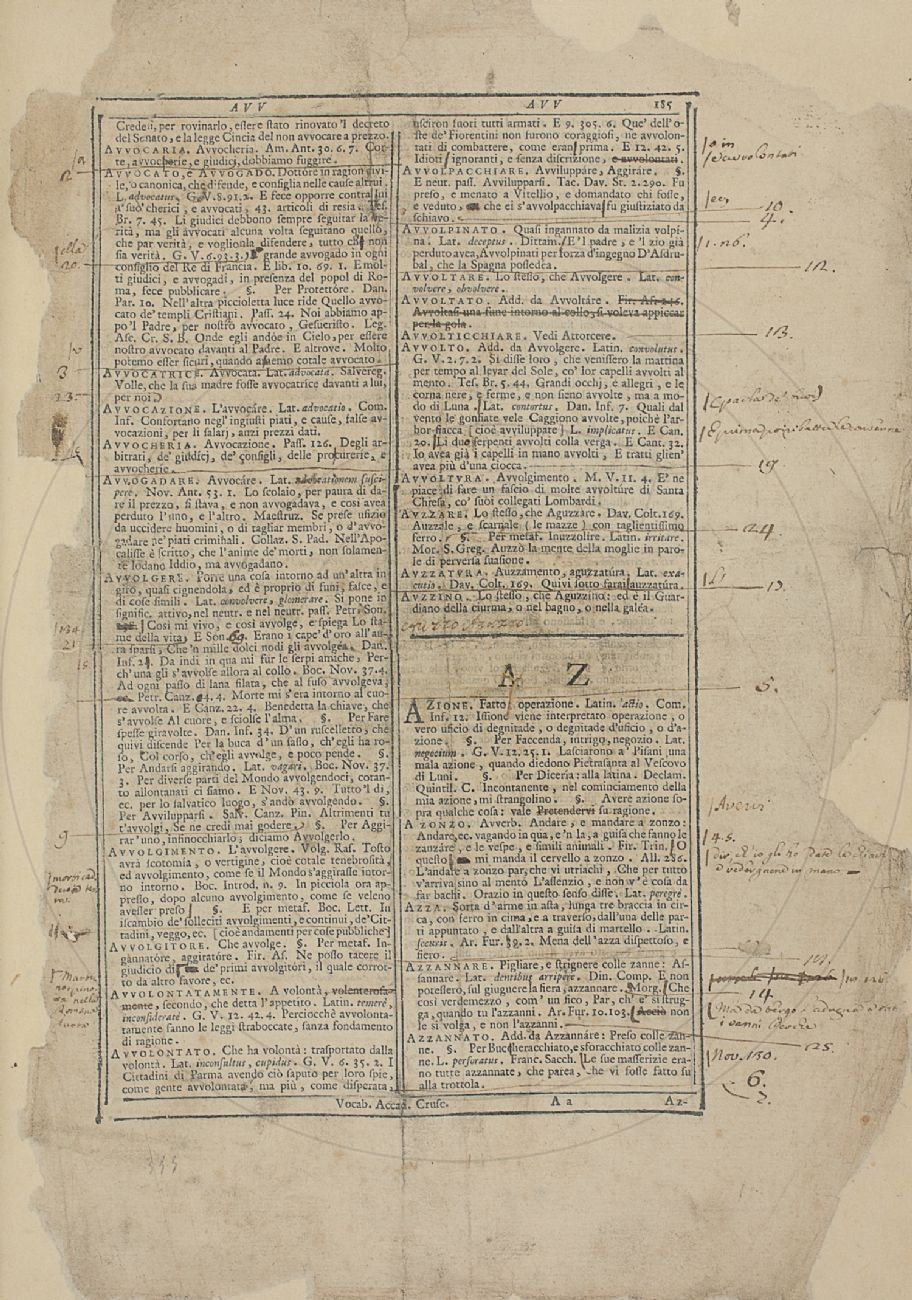 AVV
AVV 185
Credesi, per rovinarlo, essere stato rinovato 'l decreto
del Senato, e la legge Cincia del non avvocare a prezzo.
AVVOCARIA. Avvocheria. Am. Ant. 30. 6. 7. Cor-
te, avvocherie, e giudici, dobbiamo fuggire.
AVVOCATO, e AVVOGADO. Dottore in ragion civi-
le, o canonica, che difende, e consiglia nelle cause altrui.
L. advocatus. G. V. 8. 91. 2. E fece opporre contra lui
a' suo' cherici, e avvocati, 43. articoli di resia. Tes.
Br. 7. 45. Li giudici debbono sempre seguitar la ve-
rità, ma gli avvocati alcuna volta seguitano quello,
che par verità, e voglionla difendere, tutto che non
sia verità. G. V. 6. 92. 3. grande avvogado in ogni
consiglio del Re di Francia. E lib. 10. 69. 1. E mol-
ti giudici, e avvogadi, in presenza del popol di Ro-
ma, fece pubblicare. §. Per Protettore. Dan.
Par. 10. Nell'altra piccioletta luce ride Quello avvo-
cato de' templi Cristiani. Pass. 24. Noi abbiamo ap-
po 'l Padre, per nostro avvocato, Gesucristo. Leg.
Asc. Cr. S. B. Onde egli andóe in Cielo, per essere
nostro avvocato davanti al Padre. E altrove. Molto
potemo esser sicuri, quando avemo cotale avvocato.
AVVOCATRICE. Avvocata. Lat. advocata. Salvereg.
Volle, che la sua madre fosse avvocatrice davanti a lui,
per noi
AVVOCAZIONE. L'avvocáre. Lat. advocatio. Com.
Inf. Confortano negl'ingiusti piati, e cause, false av-
vocazioni, per li salarj, anzi prezzi dati.
AVVOCHERIA. Avvocazione. Pass. 126. Degli ar-
bitrati, de' giudici, de' consigli, delle procurerie, e
avvocherie.
AVVOGADARE. Avvocáre. Lat. advocationem susci-
pere. Nov. Ant. 53. 1. Lo scolaio, per paura di da-
re il prezzo, si stava, e non avvogadava, e così avea
perduto l'uno, e l'altro. Maestruz. Se prese ufizio
da uccidere huomini, o di tagliar membri, o d'avvo-
gadare ne' piati criminali. Collaz. S. Pad. Nell'Apo-
calisse è scritto, che l'anime de' morti, non solamen-
te lodano Iddio, ma avvogadano.
AVVOLGERE. Porre una cosa intorno ad un'altra in
giro, quasi cignendola, ed è proprio di funi, fasce, e
di cose simili. Lat. convolvere, glomerare. Si pone in
signific. attivo, nel neutr. e nel neutr. pass. Petr. Son.
Così mi vivo, e così avvolge, e spiega Lo sta-
me della vita, E Son. 69. Erano i cape' d'oro all'au-
ra sparsi, Che 'n mille dolci nodi gli avvolgea. Dan.
Inf. 21. Da indi in qua mi fur le serpi amiche, Per-
ch'una gli s'avvolse allora al collo. Boc. Nov. 37. 4.
Ad ogni passo di lana filata, che al fuso avvolgeva,
ec. Petr. Canz. 4. 4. Morte mi s'era intorno al cuo-
re avvolta. E Canz. 22. 4. Benedetta la chiave, che
s'avvolse Al cuore, e sciolse l'alma. §. Per Fare
spesse giravolte. Dan. Inf. 34. D'un ruscelletto, che
quivi discende Per la buca d'un sasso, ch'egli ha ro-
so, Col corso, ch'egli avvolge, e poco pende. §.
Per Andarsi aggirando. Lat. vagari. Boc. Nov. 37.
3. Per diverse parti del Mondo avvolgendoci, cotan-
to allontanati ci siamo. E Nov. 43. 9. Tutto 'l dì,
ec. per lo salvatico luogo, s'andò avvolgendo. §.
Per Avvilupparsi. Salv. Canz. Pin. Altrimenti tu
t'avvolgi, Se ne credi mai godere. §. Per Aggi-
rar'uno, infinocchiarlo, diciamo Avvolgerlo.
AVVOLGIMENTO. L'avvolgere. Volg. Ras. Tosto
avrà iscotomia, o vertigine, cioè cotale tenebrosità,
ed avvolgimento, come se il Mondo s'aggirasse intor-
no intorno. Boc. Introd. n. 9. In picciola ora ap-
presso, dopo alcuno avvolgimento, come se veleno
avesser preso §. E per metaf. Boc. Lett. In
iscambio de' solleciti avvolgimenti, e continui, de' Cit-
tadini, veggo, ec. [cioè andamenti per cose pubbliche]
AVVOLGITORE. Che avvolge. §. Per metaf. In-
gannatore, aggiratore. Fir. As. Ne posso tacere il
giudicio di de' primi avvolgitori, il quale corrot-
to da altro favore, ec.
AVVOLONTATAMENTE. A volontà, volenterosa-
mente, secondo, che detta l'appetito. Latin. temerè,
inconsideratè. G. V. 12. 42. 4. Perciocchè avvolonta-
tamente fanno le leggi straboccate, sanza fondamento
di ragione.
AVVOLONTATO. Che ha volontà: trasportato dalla
volontà. Lat. inconsultus, cupidus. G. V. 6. 35. 2. I
Cittadini di Parma avendo ciò saputo per loro spie,
come gente avvolontata, ma più, come disperata,
usciron fuori tutti armati. E 9. 305. 6. Que' dell'o-
ste de' Fiorentini non furono coraggiosi, ne avvolon-
tati di combattere, come eran prima. E 12. 42. 5.
Idioti ignoranti, e senza discrizione, e avvolontati.
AVVOLPACCHIARE. Avviluppáre, Aggiráre. §.
E neut. pass. Avvilupparsi. Tac. Dav. St. 2. 290. Fu
preso, e menato a Vitellio, e domandato chi fosse,
e veduto, che ei s'avvolpacchiava fu giustiziato da
schiavo.
AVVOLPINATO. Quasi ingannato da malizia volpi-
na. Lat. deceptus. Dittam. E 'l padre, e 'l zio già
perduto avea, Avvolpinati per forza d'ingegno D'Asdru-
bal, che la Spagna possedea.
AVVOLTARE. Lo stesso, che Avvolgere. Lat. con-
volvere, obvolvere.
AVVOLTATO. Add. da Avvoltáre. Fir. As. 246.
Avvoltasi una fune intorno al collo, si voleva appiccar
per la gola.
AVVOLTICCHIARE. Vedi Attorcere.
AVVOLTO. Add. da Avvolgere. Latin. convolutus.
G. V. 2. 7. 2. Si disse loro, che venissero la mattina
per tempo al levar del Sole, co' lor capelli avvolti al
mento. Tes. Br. 5. 44. Grandi occhj, e allegri, e le
corna nere, e ferme, e non sieno avvolte, ma a mo-
do di Luna. Lat. contortus. Dan. Inf. 7. Quali dal
vento le gonfiate vele Caggiono avvolte, poichè l'ar-
bor fiacca [cioè avviluppate] L. implicatus. E Can.
20. Li duo serpenti avvolti colla verga. E Cant. 32.
Io avea già i capelli in mano avvolti, E tratti glien'
avea più d'una ciocca.
AVVOLTURA. Avvolgimento. M. V. 11. 4. E' ne
piace di fare un fascio di molte avvolture di Santa
Chiesa, co' suoi collegati Lombardi.
AVZZARE. Lo stesso, che Aguzzáre. Dav. Colt. 169.
Auzzale, e scarnale (le mazze) con taglientissimo
ferro. §. Per metaf. Inuzzolire. Latin. irritare.
Mor. S. Greg. Auzzò la mente della moglie in paro-
le di perversa suasione.
AVZZATURA. Auzzamento, aguzzatúra. Lat. exa-
cutio. Dav. Colt. 169. Quivi sotto farai l'auzzatúra.
AVZZINO. Lo stesso, che Aguzzino: ed è il Guar-
diano della ciurma, o nel bagno, o nella galéa.
A Z
AZIONE. Fatto operazione. Latin. actio. Com.
Inf. 12. Issione viene interpretato operazione, o
vero uficio di degnitade, o degnitade d'uficio, o d'a-
zione. §. Per Faccenda, intrigo, negozio. Lat.
negocium. G. V. 12. 25. 1. Lasciarono a' Pisani una
mala azione, quando diedono Pietrasanta al Vescovo
di Luni. §. Per Diceria: alla latina. Declam.
Quintil. C. Incontanente, nel cominciamento della
mia azione, mi strangolino. §. Avere azione so-
pra qualche cosa: vale Pretendervi su ragione.
A ZONZO. Avverb. Andare, e mandare a zonzo:
Andare, ec. vagando in qua, e 'n la, a guisa che fanno le
zanzáre, e le vespe, e simili animali. Fir. Trin. O
questo mi manda il cervello a zonzo. All. 286.
L'andare a zonzo par, che vi utriachi, Che per tutto
v'arriva sino al mento L'assenzio, e non v'è cosa da
far bachi. Orazio in questo senso disse. Lat. peregrè.
AZZA. Sorta d'arme in asta, lunga tre braccia in cir-
ca, con ferro in cima, e a traverso, dall'una delle par-
ti appuntato, e dall'altra a guisa di martello. Latin.
securis. Ar. Fur. 9. 2. Mena dell'azza dispettoso, e
fiero.
AZZANNARE. Pigliare, e strignere colle zanne: As-
sannare. Lat. dentibus arripere. Din. Comp. E non
potessero, sul giugnere la fiera, azzannare. Morg. Che
così verdemezzo, com'un fico, Par, ch'e' si strug-
ga, quando tu l'azzanni. Ar. Fur. 10. 103. Acciò non
le si volga, e non l'azzanni.
AZZANNATO. Add. da Azzannáre: Preso colle zan-
ne. §. Per Bucheracchiato, e sforacchiato colle zan-
ne. L. perforatus. Franc. Sacch. Le sue masserizie era-
no tutte azzannate, che parea, che vi fosse fatto su
alla trottola.
Vocab. Accad. Crusc. A a Az-
12
20.
3
23
134
21
9
10.
4.
112.
113
19.
124.
13.
5.
Avervi
45.
14
Nov. 150.
125.
6.
2.
333